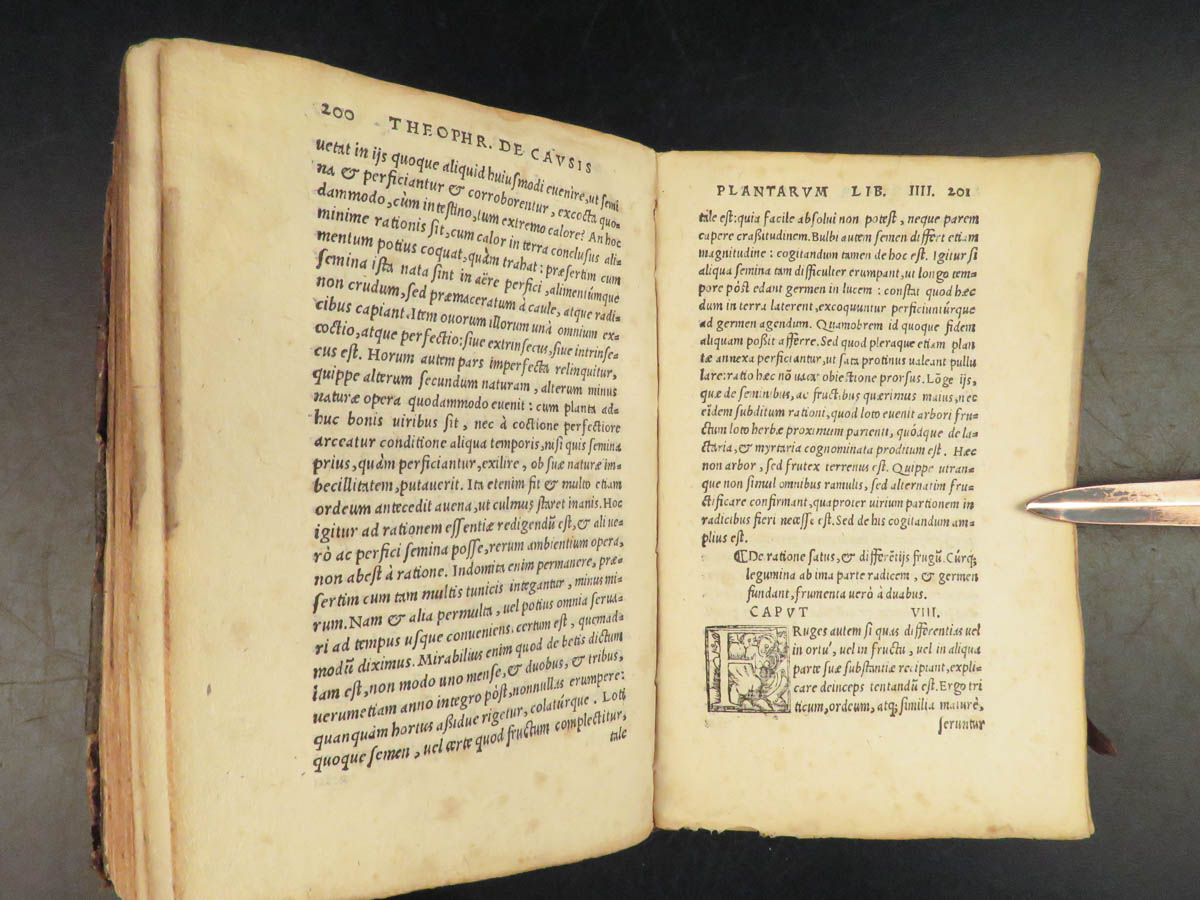 200 THEOPHR. DE CAVSIS
uetat in ijs quoque aliquid huiusmodi euenire, ut semi
na & perficiantur & corroborentur, excocta quo-
dammodo, cùm intestino, tum extremo calore? An hoc
minime rationis sit, cum calor in terra conclusus ali-
mentum potius coquat, quàm trahat: præsertim cum
semina ista nata sint in aëre perfici, alimentúmque
non crudum, sed præmaceratum à caule, atque radi-
cibus capiant. Item ouorum illorum unà omnium ex-
coctio, atque perfectio: siue extrinsecus, siue intrinse-
cus est. Horum autem pars imperfecta relinquitur,
quippe alterum secundum naturam, alterum minus
naturæ opera quodammodo euenit: cum planta ad-
huc bonis uiribus sit, nec à coctione perfectiore
arceatur conditione aliqua temporis, nisi quis semina
prius, quàm perficiantur, exilire, ob suæ naturæ im-
becillitatem, putauerit. Ita etenim fit & multo etiam
ordeum antecedit auena, ut culmus staret inanis. Hoc
igitur ad rationem essentiæ redigendũ est, & ali ue-
rò ac perfici semina posse, rerum ambientium opera,
non abest à ratione. Indomita enim permanere, præ-
sertim cum tam multis tunicis integantur, minus mi-
rum. Nam & alia permulta, uel potius omnia serua-
ri ad tempus usque conueniens, certum est, quemad-
modũ diximus. Mirabilius enim quod de betis dictum
iam est, non modo uno mense, & duobus, & tribus,
uerumetiam anno integro pòst, nonnullas erumpere:
quanquàm hortus aßidue rigetur, colatúrque. Loti
quoque semen, uel certe quod fructum complectitur,
tale
PLANTARVM LIB. IIII. 201
tale est: quia facile absolui non potest, neque parem
capere craßitudinem. Bulbi autem semen differt etiam
magnitudine: cogitandum tamen de hoc est. Igitur si
aliqua semina tam difficulter erumpant, ut longo tem-
pore pòst edant germen in lucem: constat quod hæc
dum in terra laterent, excoquuntur perficiuntúrque
ad germen agendum. Quamobrem id quoque fidem
aliquam poßit afferre. Sed quod pleraque etiam plan
tæ annexa perficiantur, ut sata protinus ualeant pullu
lare: ratio hæc nõ uacat obiectione prorsus. Lõge ijs,
quæ de seminibus, ac fructibus quærimus maius, nec
eidem subditum rationi, quod loto euenit arbori fru-
ctum loto herbæ proximum parienti, quódque de la-
ctaria, & myrtaria cognominata proditum est. Hæc
non arbor, sed frutex terrenus est. Quippe utran-
que non simul omnibus ramulis, sed alternatim fru-
ctificare confirmant, quapropter uirium partionem in
radicibus fieri necesse est. Sed de his cogitandum am-
plius est.
¶ De ratione satus, & differẽtijs frugũ. Cúrq;
legumina ab ima parte radicem, & germen
fundant, frumenta uerò à duabus.
CAPVT VIII.
FRuges autem si quas differentias uel
in ortu, uel in fructu, uel in aliqua
parte suæ substantiæ recipiant, expli-
care deinceps tentandũ est. Ergo tri
ticum, ordeum, atq; similia maturè,
seruntur